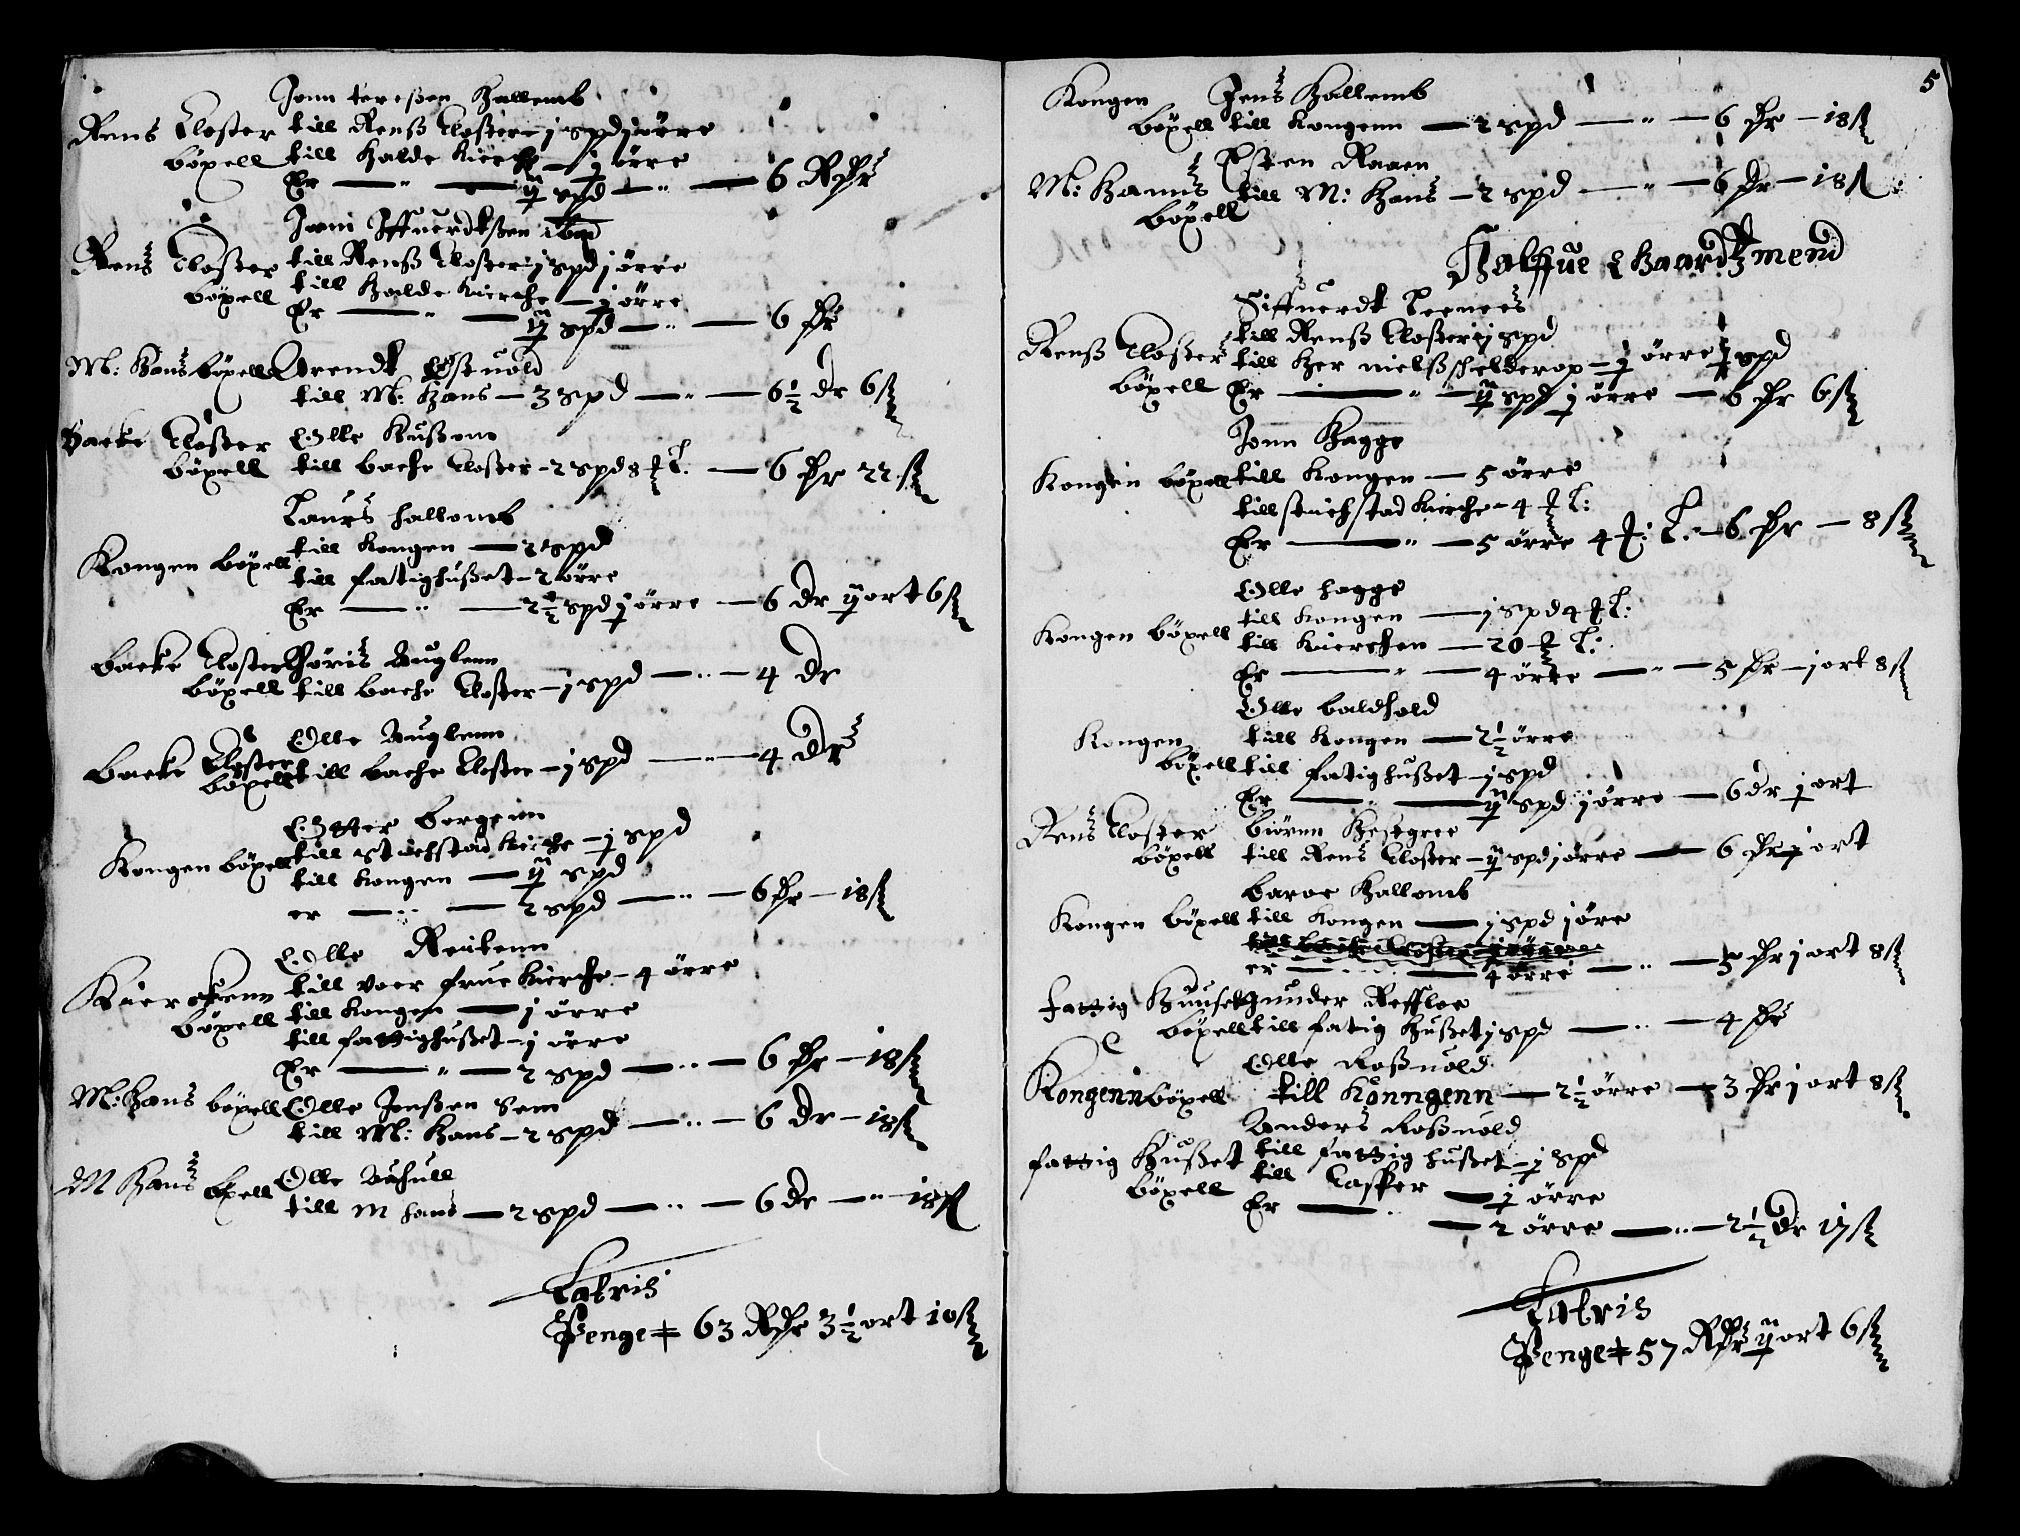 Jonn teresßen Hallemb
Rens Closter till Renß Closter – j spd j örre
böxell till Halde Kierche – j örre
Er — " — ij spd — " — 6 Rdr
Jonn Siffuerdtsßen ibed
Rens Closter till Renß Closter – j spd j örre
böxell till Halde Kierche – j örre
Er — " — ij spd — " — 6 dr
M: Hans böxell Arendt Östuold
till M: Hans – 3 spd — " — 6½ dr 6 ß
Backe Closter Olle Kußom
böxell till Backe Closter – 2 spd 8 # L: — 6 dr 22 ß
Laurs Hallomb
Kongen böxell till Kongen — 2 spd
till fatighußet – 2 örre
Er — " — 2½ spd j örre — 6 dr ij ort 6 ß
Backe Closter Joris Auglenn
böxell till Backe Closter – j spd — " — 4 dr
Olle Auglenn
Backe Closter till Backe Closter – j spd — " — 4 dr
böxell
Otter Borgeim
till Stichstad Kirche – j spd
Kongen böxell till Kongen — ij spd
er — " — 2 spd — " — 6 dr – 18 ß
Olle Reitenn
Kierckenn till Voer frue Kierche – 4 örre
böxell till Kongen — j örre
till fattighußet – j örre
Er — " — 2 spd — " — 6 dr – 18 ß
M: Hans böxell Olle Jonßen Sem
till M: Hans – 2 spd — " — 6 dr – 18 ß
M Hans böxell Olle Vuhull
till M Hans — 2 spd — " — 6 dr — " – 18 ß
Latris
Penge # 63 Rdr 3½ ort 10 ß
5
Kongen Jens Hallemb
böxell till Kongenn — 2 spd — " — 6 dr – 18 ß
Esten Raaen
M: Hanns till M: Hans – 2 spd — " — 6 dr – 18 ß
böxell
Halffue Gaardtzmend
Siffuerdt Leenes
Renß Closter till Renß Closter ij spd
till Her nielß schelderop – j örre j spd
böxell Er — " — ij spd j örre — 6 dr 6 ß
Jonn Hagge
Kongen böxell till Kongen — 5 örre
till Stichstad Kierche – 4 # L:
Er — " — 5 örre 4 #: L. – 6 dr — 8 ß
Olle Hagge
till Kongen — j spd 4 # L:
Kongen böxell till Kierchen — 20 # L:
Er — " — 4 örre — " — 5 dr – j ort 8 ß
Olle Baldhold
Kongen till Kongen — 2½ örre
böxell till fatighußet – j spd
Er — " — ij spd j örre — 6 dr j ort
Rens Closter Biörnn Hestgree
böxell till Rens Closter – ij spd j örre — 6 dr j ort
Baroe Hallomb
Kongen böxell till Kongen — j spd j örre
er — " — 4 örre — " — 5 dr j ort 8 ß
fattig Huuset Gunder Reffloe
böxell till fatig Hußet j spd — " — 4 dr
Olle Roßuold
Kongenn böxell till Konngenn — 2½ örre — 3 dr j ort 8 ß
Anders Roßuold
fattig Hußet till fattig hußet – j Spd
böxell till Casper — j örre
Er — " — 2 örre — " — 2½ dr 17 ß
Latris
Penge # 57 Rdr ij ort 6 ß